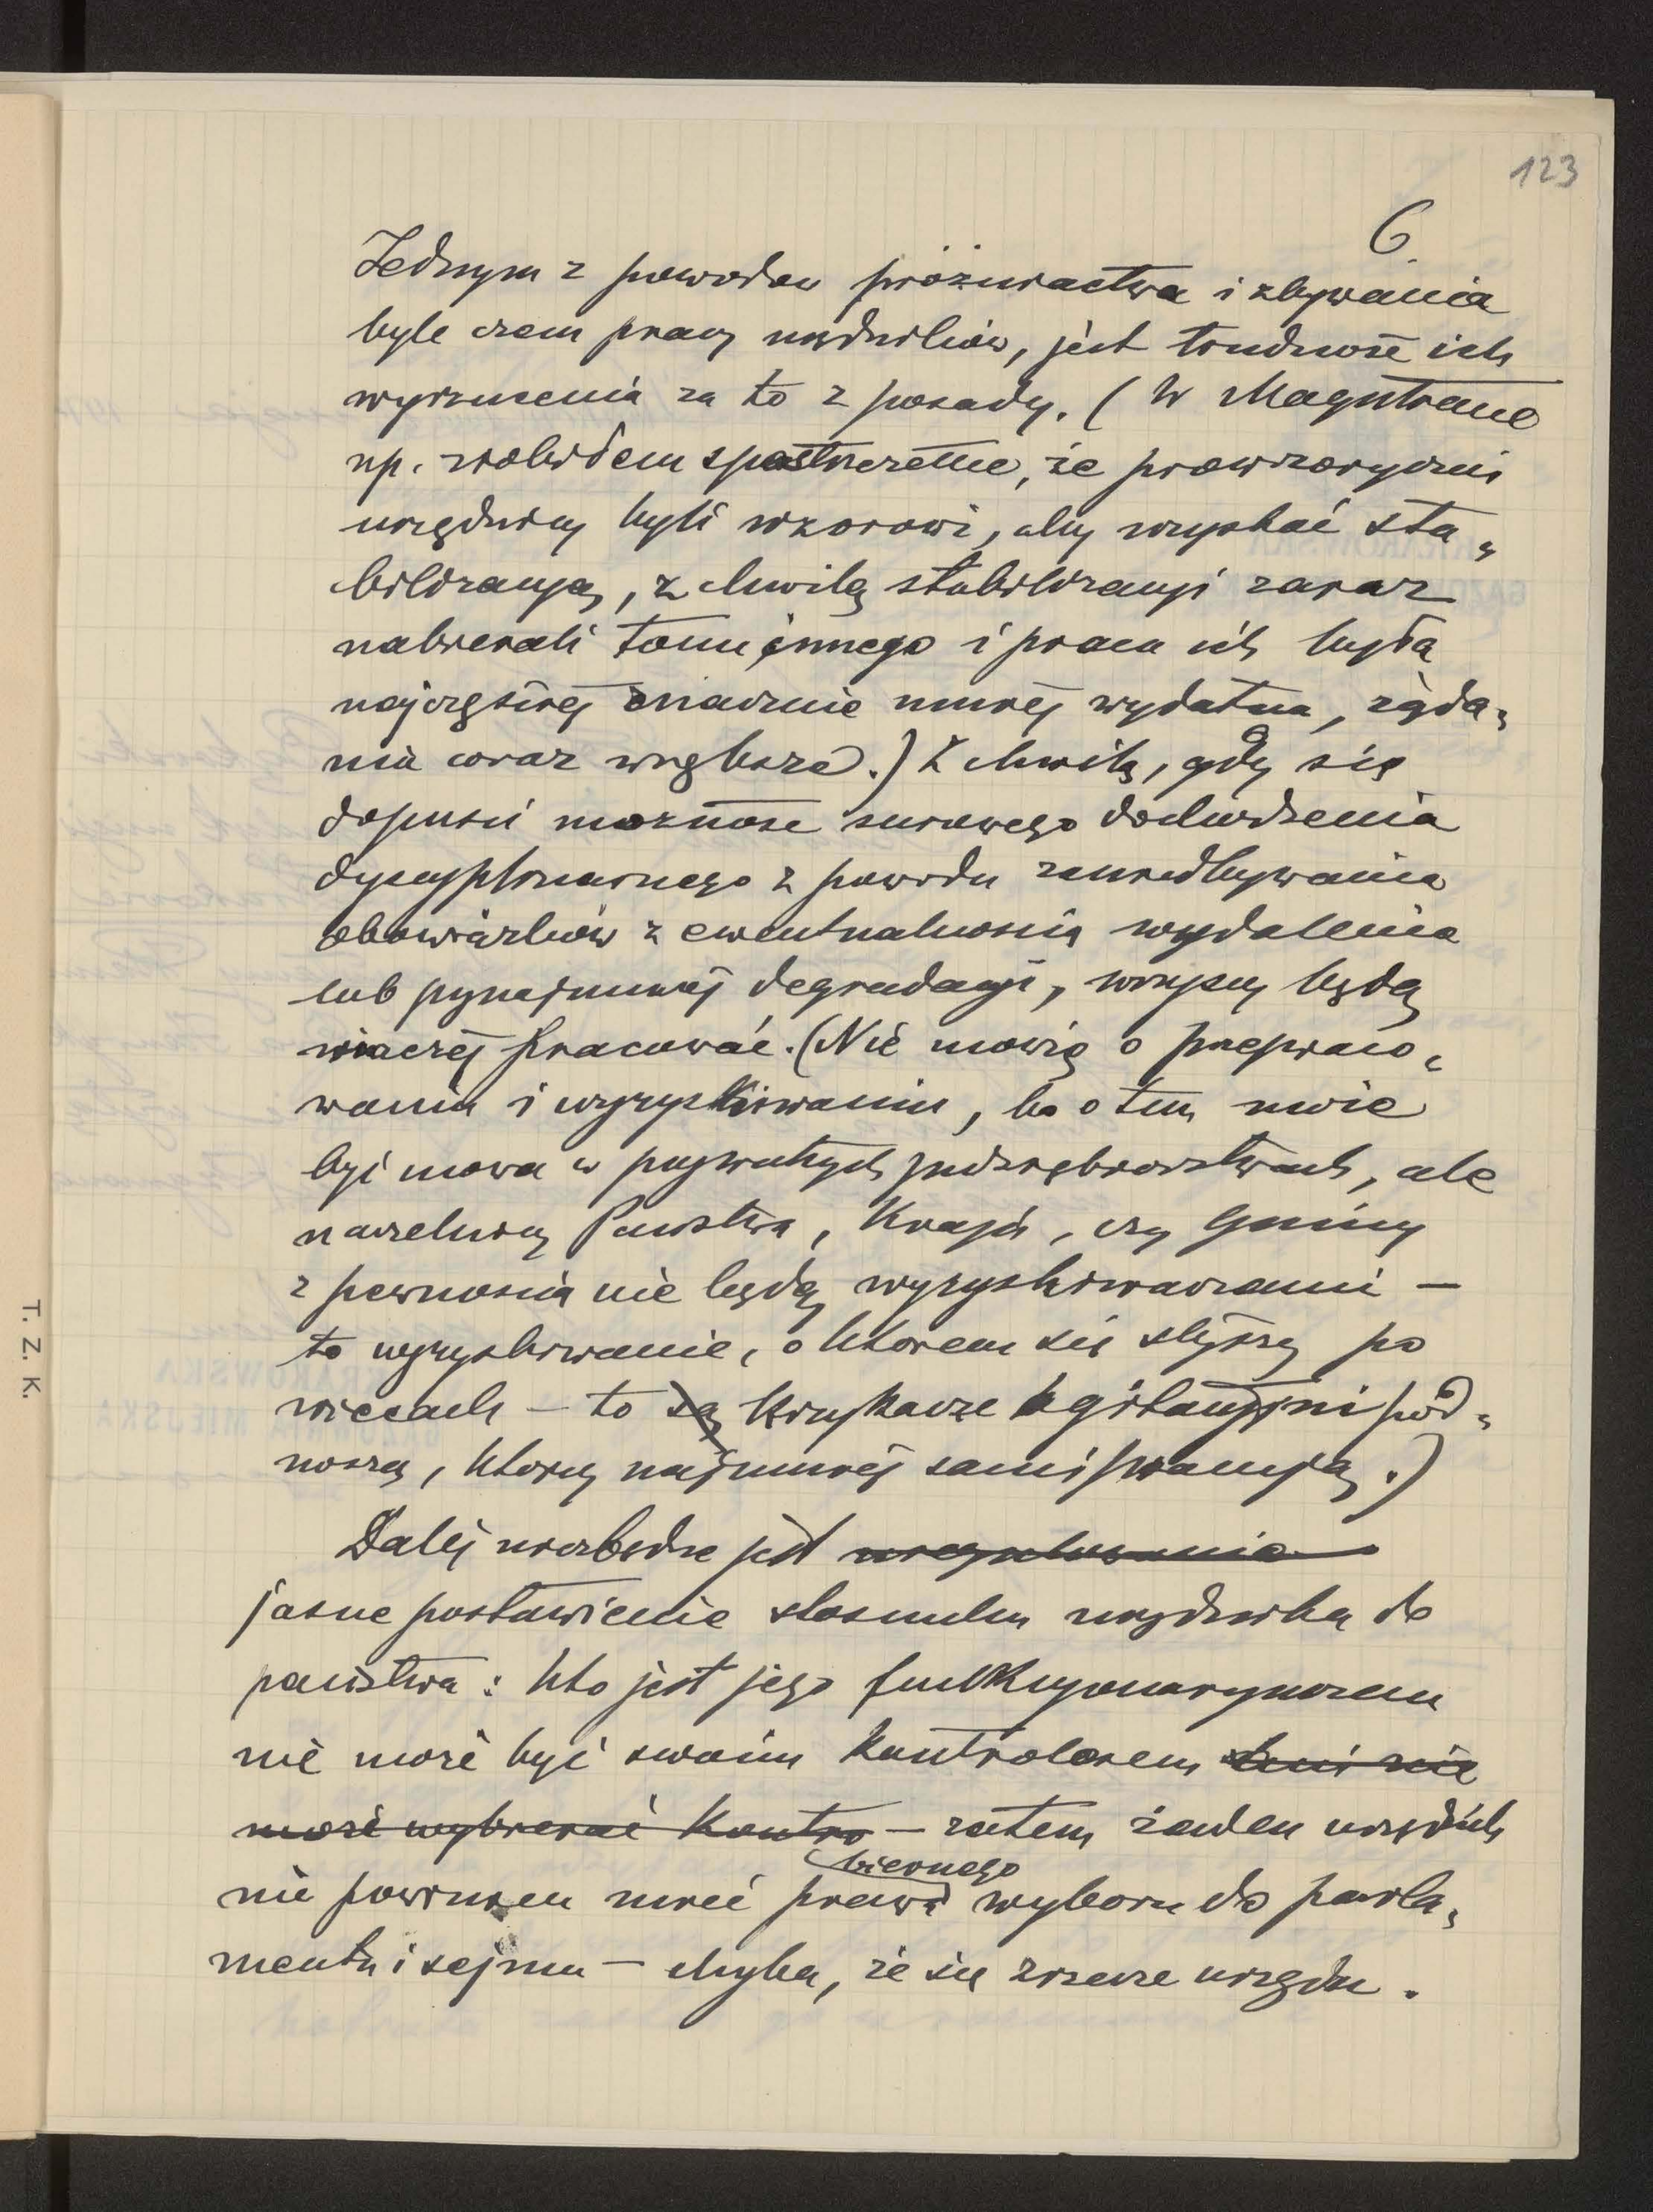 123
6.
Jednym z powodów próżniactwa i zbywania
byle czem pracy urzędników, jest trudność ich
wyrzucenia za to z posady. (W Magistracie
np. zrobiłem spostrzeżenie, że prowizoryczni
urzędnicy byli wzorowi, aby uzyskać sta„
bilizacyą, z chwilą stabilizacyi zaraz
nabierali tonu innego i praca ich była
najczęściej znacznie mniej wydatna, żąda„
nia coraz większe.) Z chwilą, gdy się
dopuści możność surowego dochodzenia
dyscyplinarnego z powodu zaniedbywania
obowiązków z ewentualnością wydalenia
lub przynajmniej degradacyi, wszyscy będą
inaczej pracować. (Nie mówię o przepraco„
waniu i wyzyskiwaniu, bo o tem może
być mowa w prywatnych przedsiębiorstwach, ale
naczelnicy Państwa, Kraju, czy Gminy
z pewnością nie będą wyzyskiwaczami —
to wyzyskiwanie, o którem się słyszy po
wiecach — to są krzykacze agitacyjni pod„
noszą, którzy najmniej sami pracują.)
Dalej niezbędne jest uregulowanie
jasne postawienie stosunku urzędnika do
państwa: kto jest jego funkcyonaryuszem
nie może być swoim kontrolorem ani nie
może wybierać kontro — zatem żaden urzędnik
biernego
nie powinien mieć prawa wyboru do parla„
mentu i sejmu — chyba, że się zrzecze urzędu.
T. Z. K.